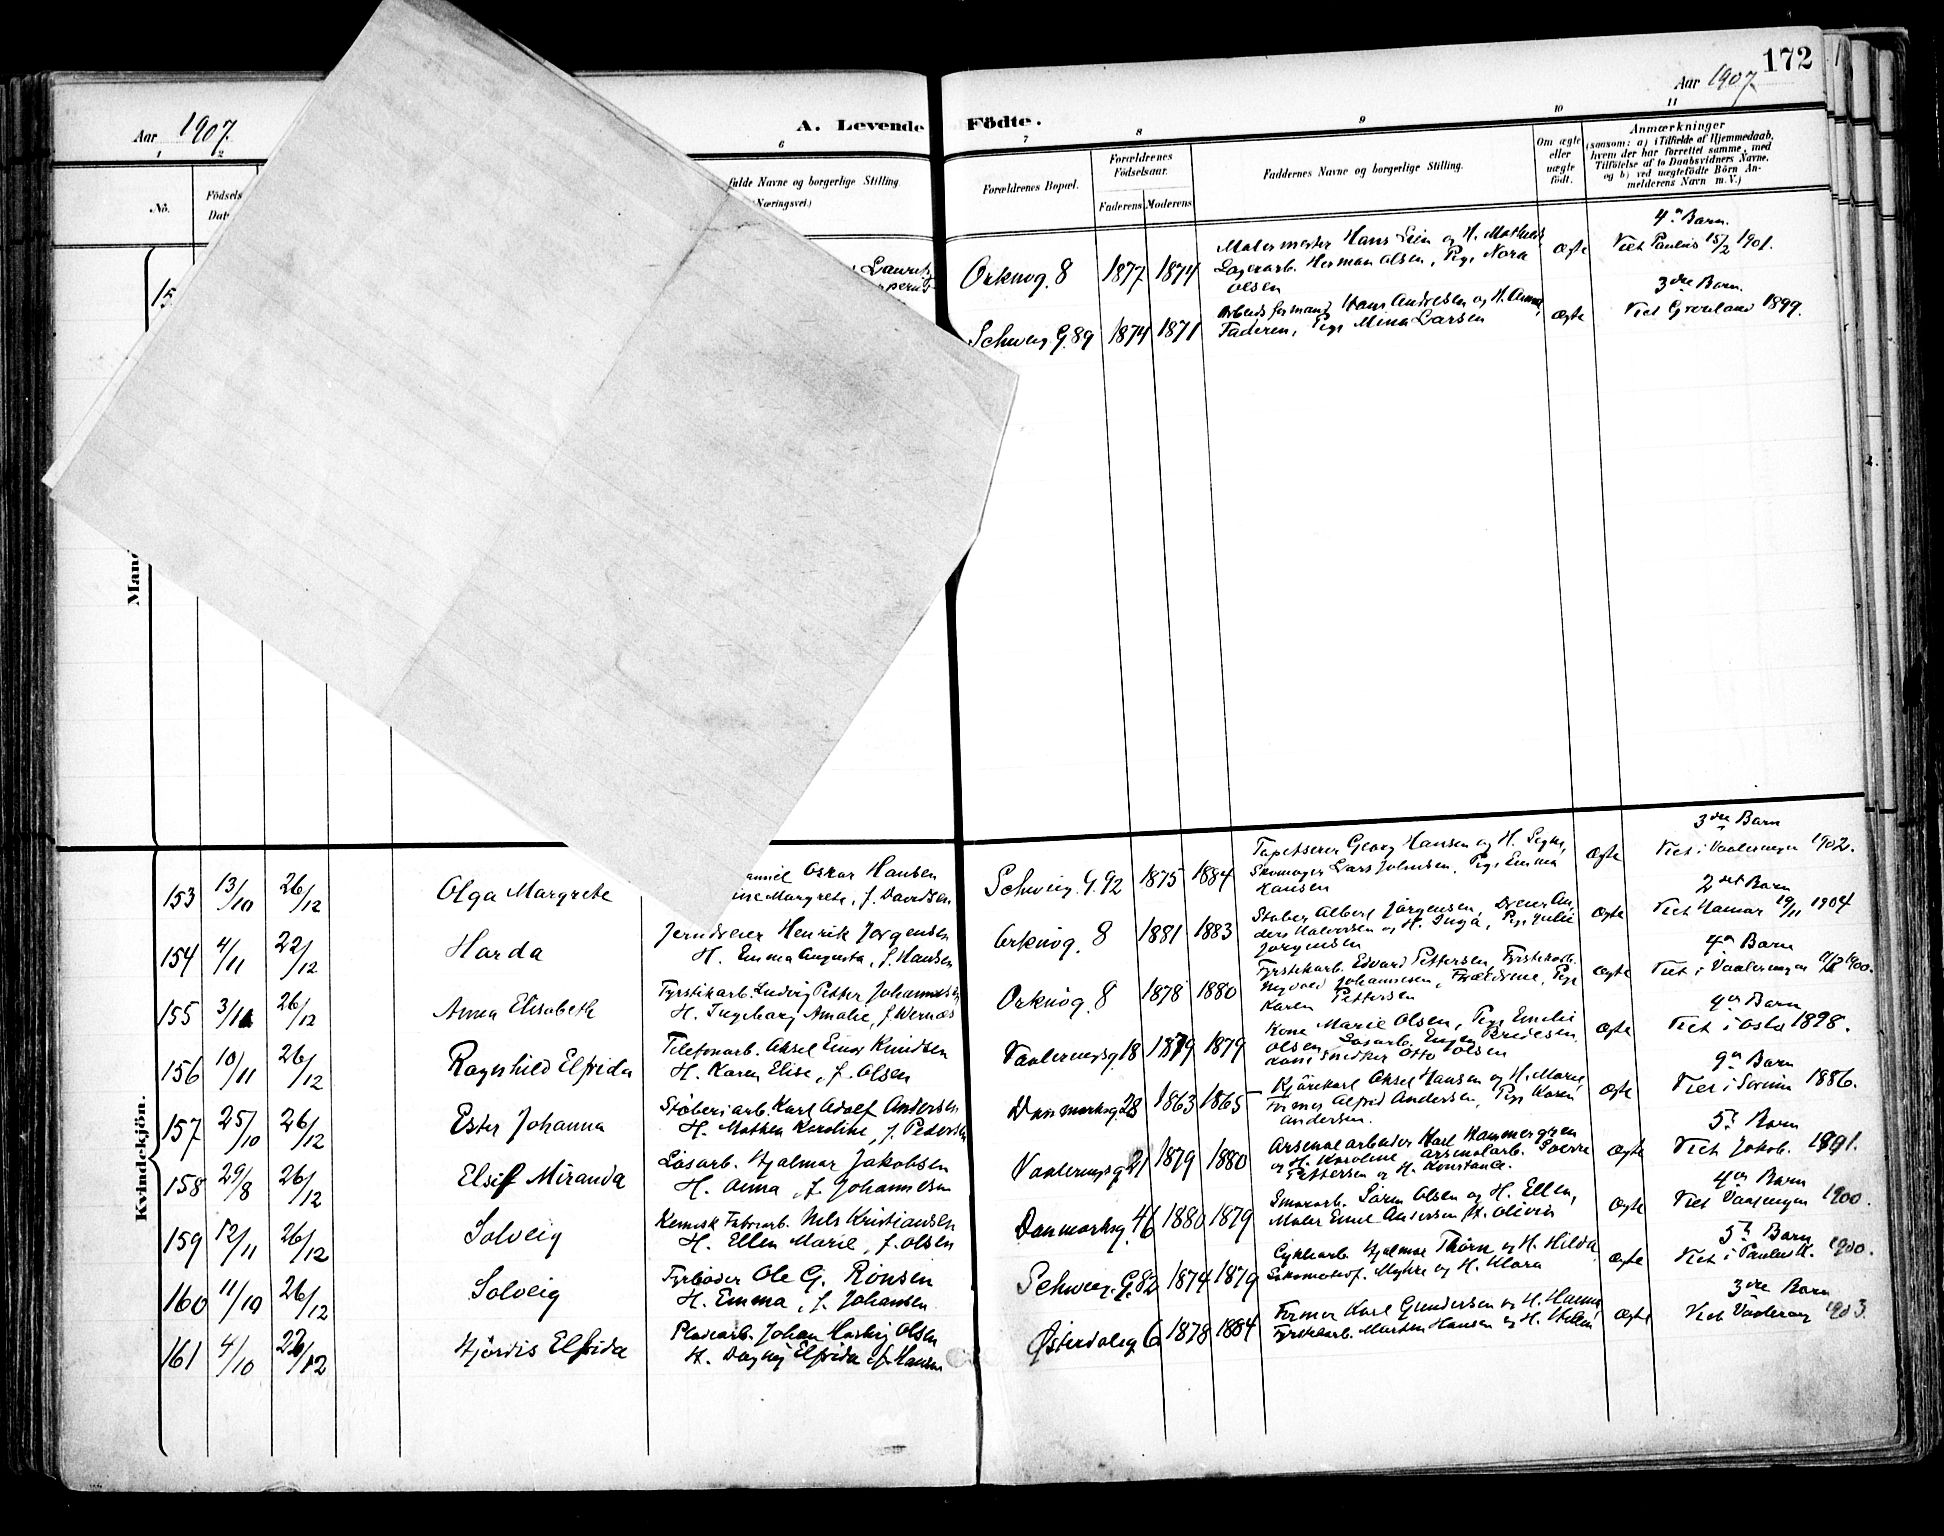 172
Aar 1907.
Aar 1907
A. Levende Födte.
1
2
6
7
8
9
10
11
No.
Födsels
Dat
fulde Navne og borgerlige Stilling
(Næringsvei.)
Forældrenes Bopæl.
Forældrenes
Födselsaar.
Faderens
Moderens
Faddernes Navne og borgerlige Stilling.
Om ægte
eller
uægte
födt.
Anmærkninger
(saasom: a) i Tilfælde af Hjemmedaab,
hvem der har forrettet samme, med
Tilföielse af to Daabsvidners Navne.
og b) ved uægtefödte Börn An-
melderens Navn m. V.)
Lauritz
Orknøg. 8 1877 1874
Malermester Hans Lien og H. Mathea
Lagerarb. Herman Olsen, Pige Nora
Olsen
Ægte
4. Barn.
Viet Paulus 15/2 1901.
Schweig. G. 89 1874 1871
Arbeidsformand Hans Andresen og H. Anna,
Faderen, Pige Mina Larsen
ægte
3die Barn.
Viet Grønland 1899.
Mand
Kvindekjön.
153 13/10 26/12 Olga Margrete
Oskar Hansen
Margrete, f. Davidsen
Schweig. G. 92 1875 1884
Tapetserer Georg Hansen og H. Signe,
Skomager Lars Johnsen, Pige Emma
Hansen
Ægte
3die Barn
Viet i Vaalerengen 1902.
154 4/11 22/12 Harda
Jerndreier Henrik Jørgensen
H. Emma Augusta, f. Hansen
Orknög. 8 1881 1883
Støber Albert Jørgensen, Dreier An-
ders Halvorsen og H. Inga, Pige Julie
Jørgensen
Ægte
2det Barn
Viet Hamar 19/11 1904
155 3/11 26/12 Anna Elisabeth
Fyrstikarb. Ludvig Petter Johannesen
H. Ingeborg Amalie, f. Wernæs
Orknög. 8 1878 1880
Fyrstikarb. Edvard Pettersen, Fyrstikarb.
Johannesen, Forældrene, Pige
Karen Pettersen
Ægte
4. Barn
Viet i Vaalerengen 1900.
156 10/11 26/12 Ragnhild Elfrida
Telefonarb. Aksel Einar Knudsen
H. Karen Elise, f. Olsen
Vaalerengsg. 18 1879 1879
Kone Marie Olsen, Pige Emelie
Olsen, Løsarb. Eugen Bredesen
Snedker Otto Olsen
Ægte
4. Barn
Viet i Oslo 1898.
157 25/10 26/12 Ester Johanna
Stöberiarb. Karl Adolf Andersen
H. Mathea Karoline, f. Pedersen
Danmarksg. 28 1863 1865
Kjörekarl Aksel Hansen og H. Marie,
Former Alfred Andersen, Pige Karen
Andersen.
Ægte
9. Barn
Viet i 1886.
158 29/8 26/12 Elsif Miranda
Løsarb. Hjalmar Jakobsen
H. Anna, f. Johannesen
Vaalerengsg. 21 1879 1880
Arsenalarbeider Karl Hammergren
og H. Karoline, Arsenalarb. Sverre
Pettersen og H. Konstance.
Ægte
5. Barn
Viet Jakob. 1901.
159 12/11 26/12 Solveig
Kemisk Fabrarb. Nils Kristiansen
H. Ellen Marie, f. Olsen
Danmarksg. 46 1880 1879
Smørarb. Sören Olsen og H. Ellen,
Maler Emil Andersen H. Olivia
Ægte
4. Barn
Viet Vaalengen 1900.
160 11/10 26/12 Solveig
Fyrböder Ole G. Rönsen
H. Emma, f. Johansen
Schweig. G. 82 1874 1879
Cyklearb. Hjalmar Thörn og H. Hilda
Lokomotivf. Myhre og H. Klara
ægte
5. Barn
Viet i Paulus K. 1900.
161 4/10 22/12 Hjördis Elfrida
Pladearb. Johan Olsen
H. Dagny Elfrida f. Hansen
Østerdalsg 6 1878 1884
Former Karl Gundersen og H. Hanna,
Fyrstikarb. Morten Hansen og H. Helene
Ægte
3die Barn
Viet Vaalereng 1903.